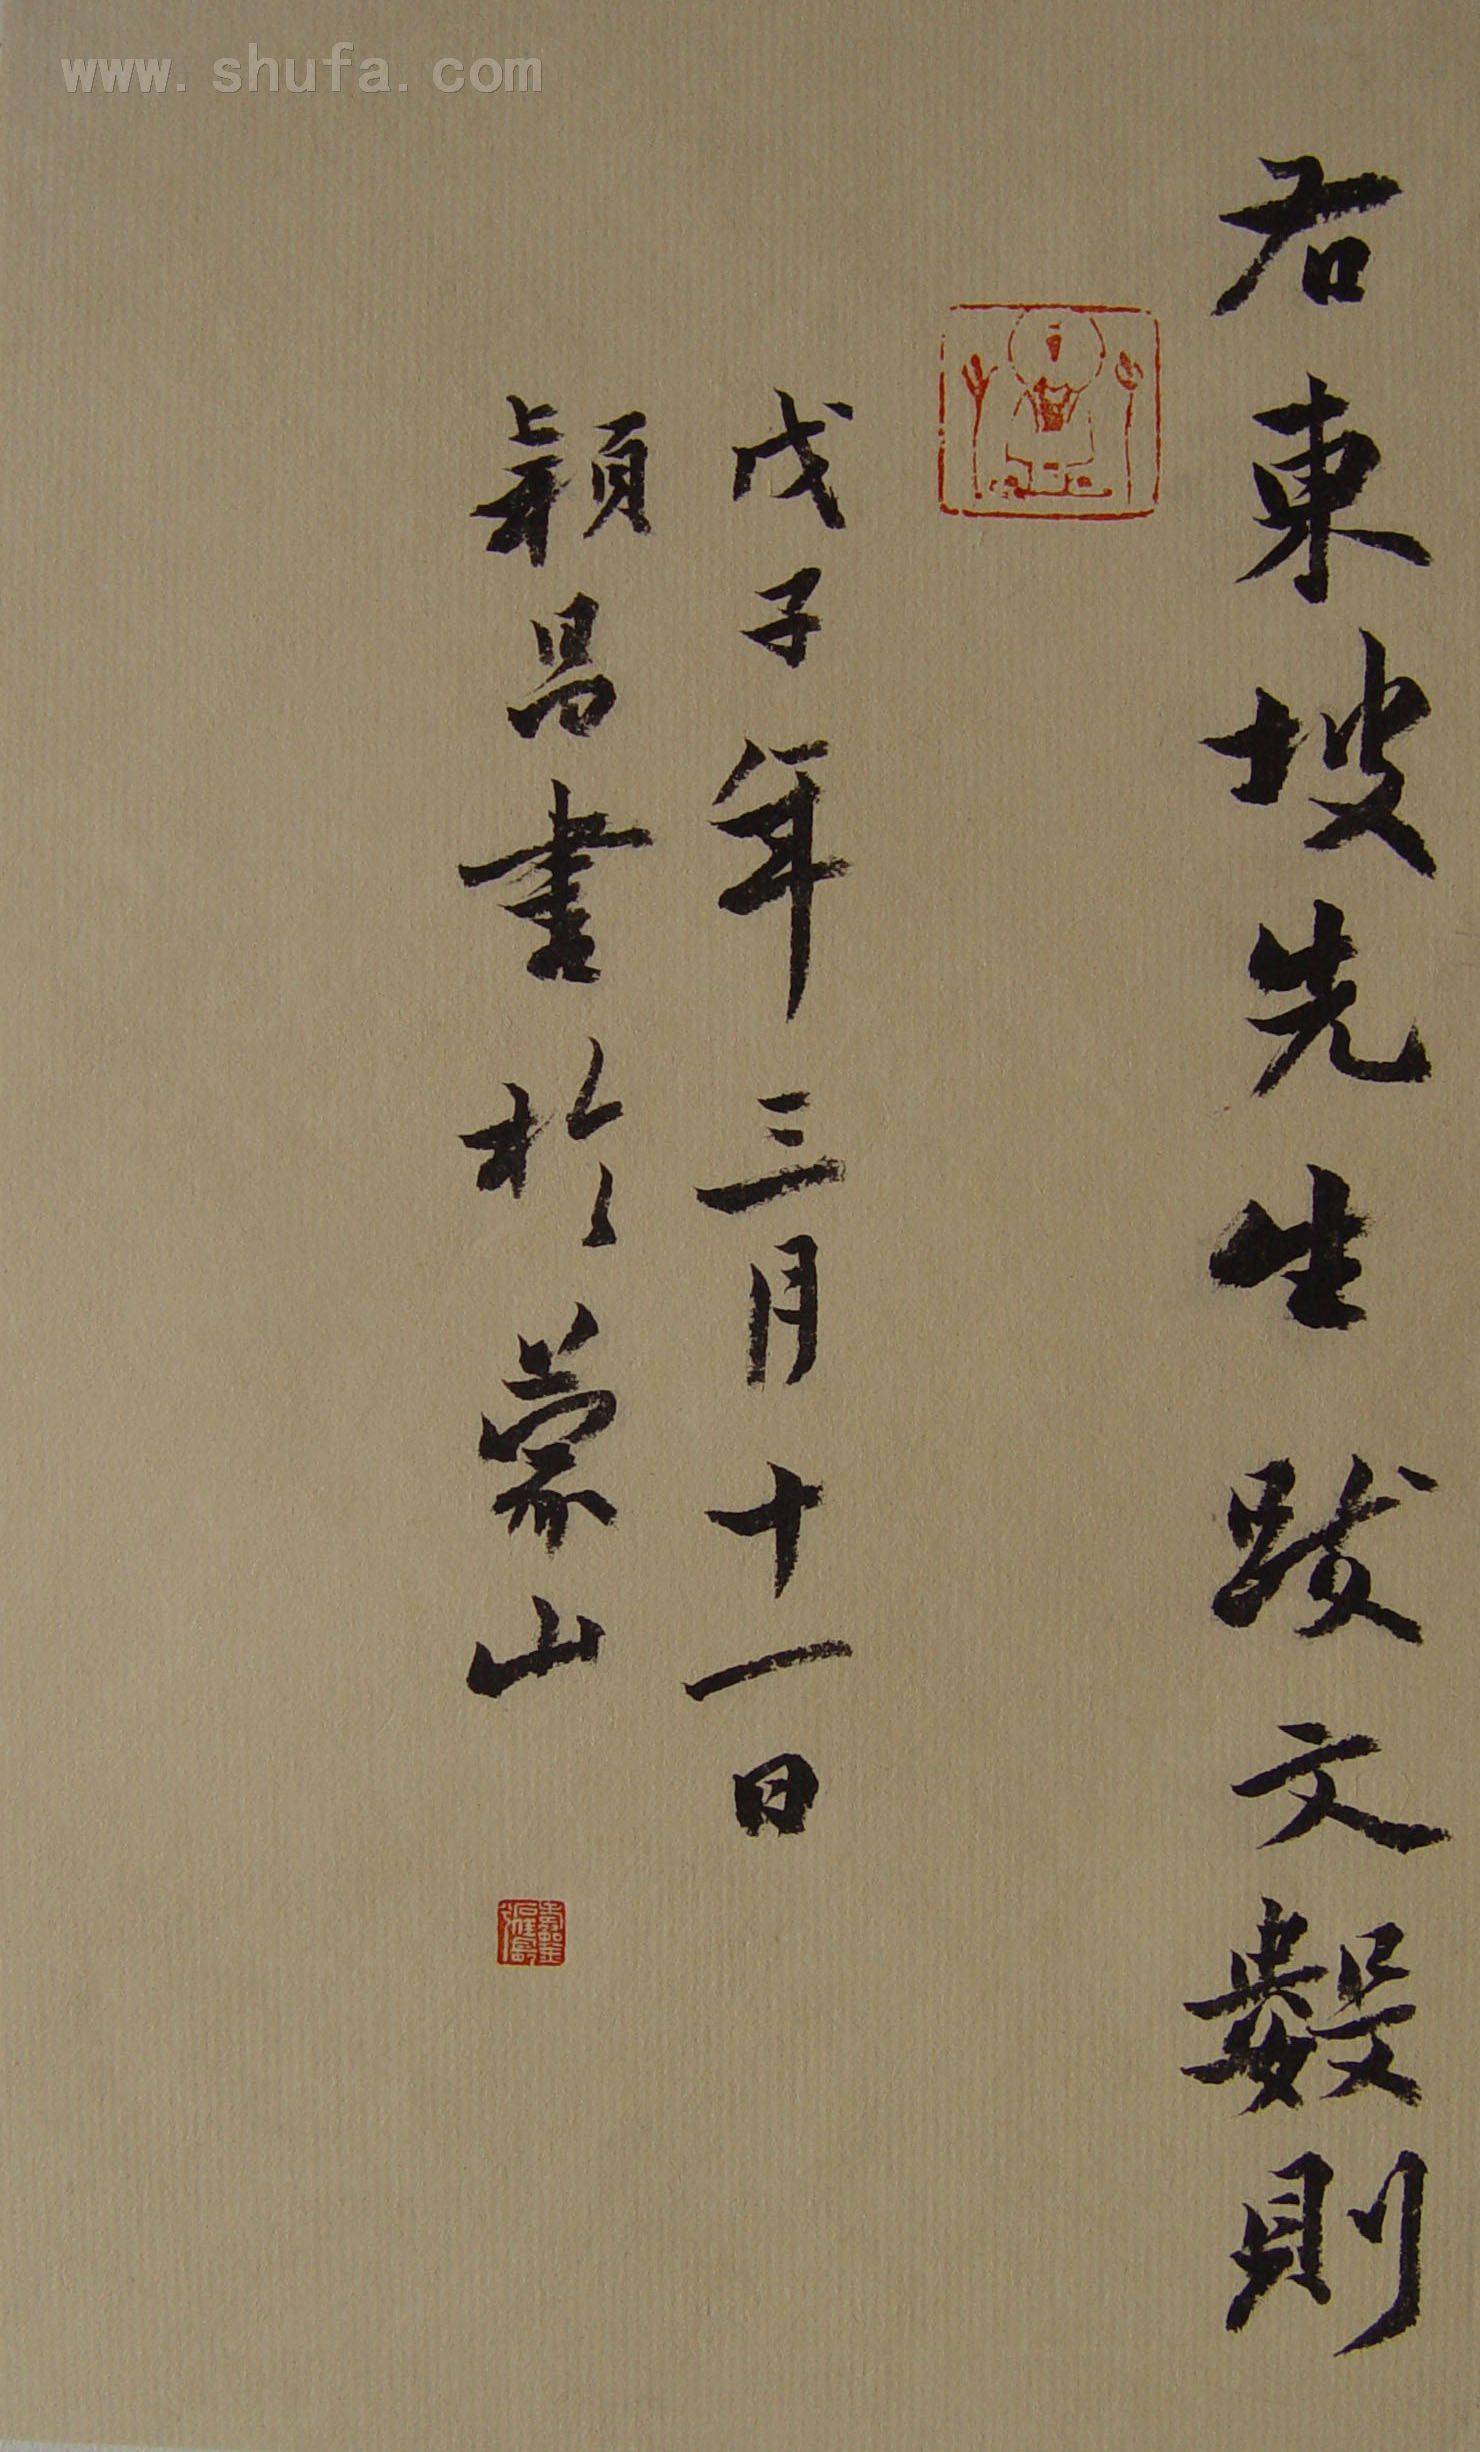 www.shufa.com
右東坡先生跋文數則
戊子年三月十一日
潁昌書於蒙山